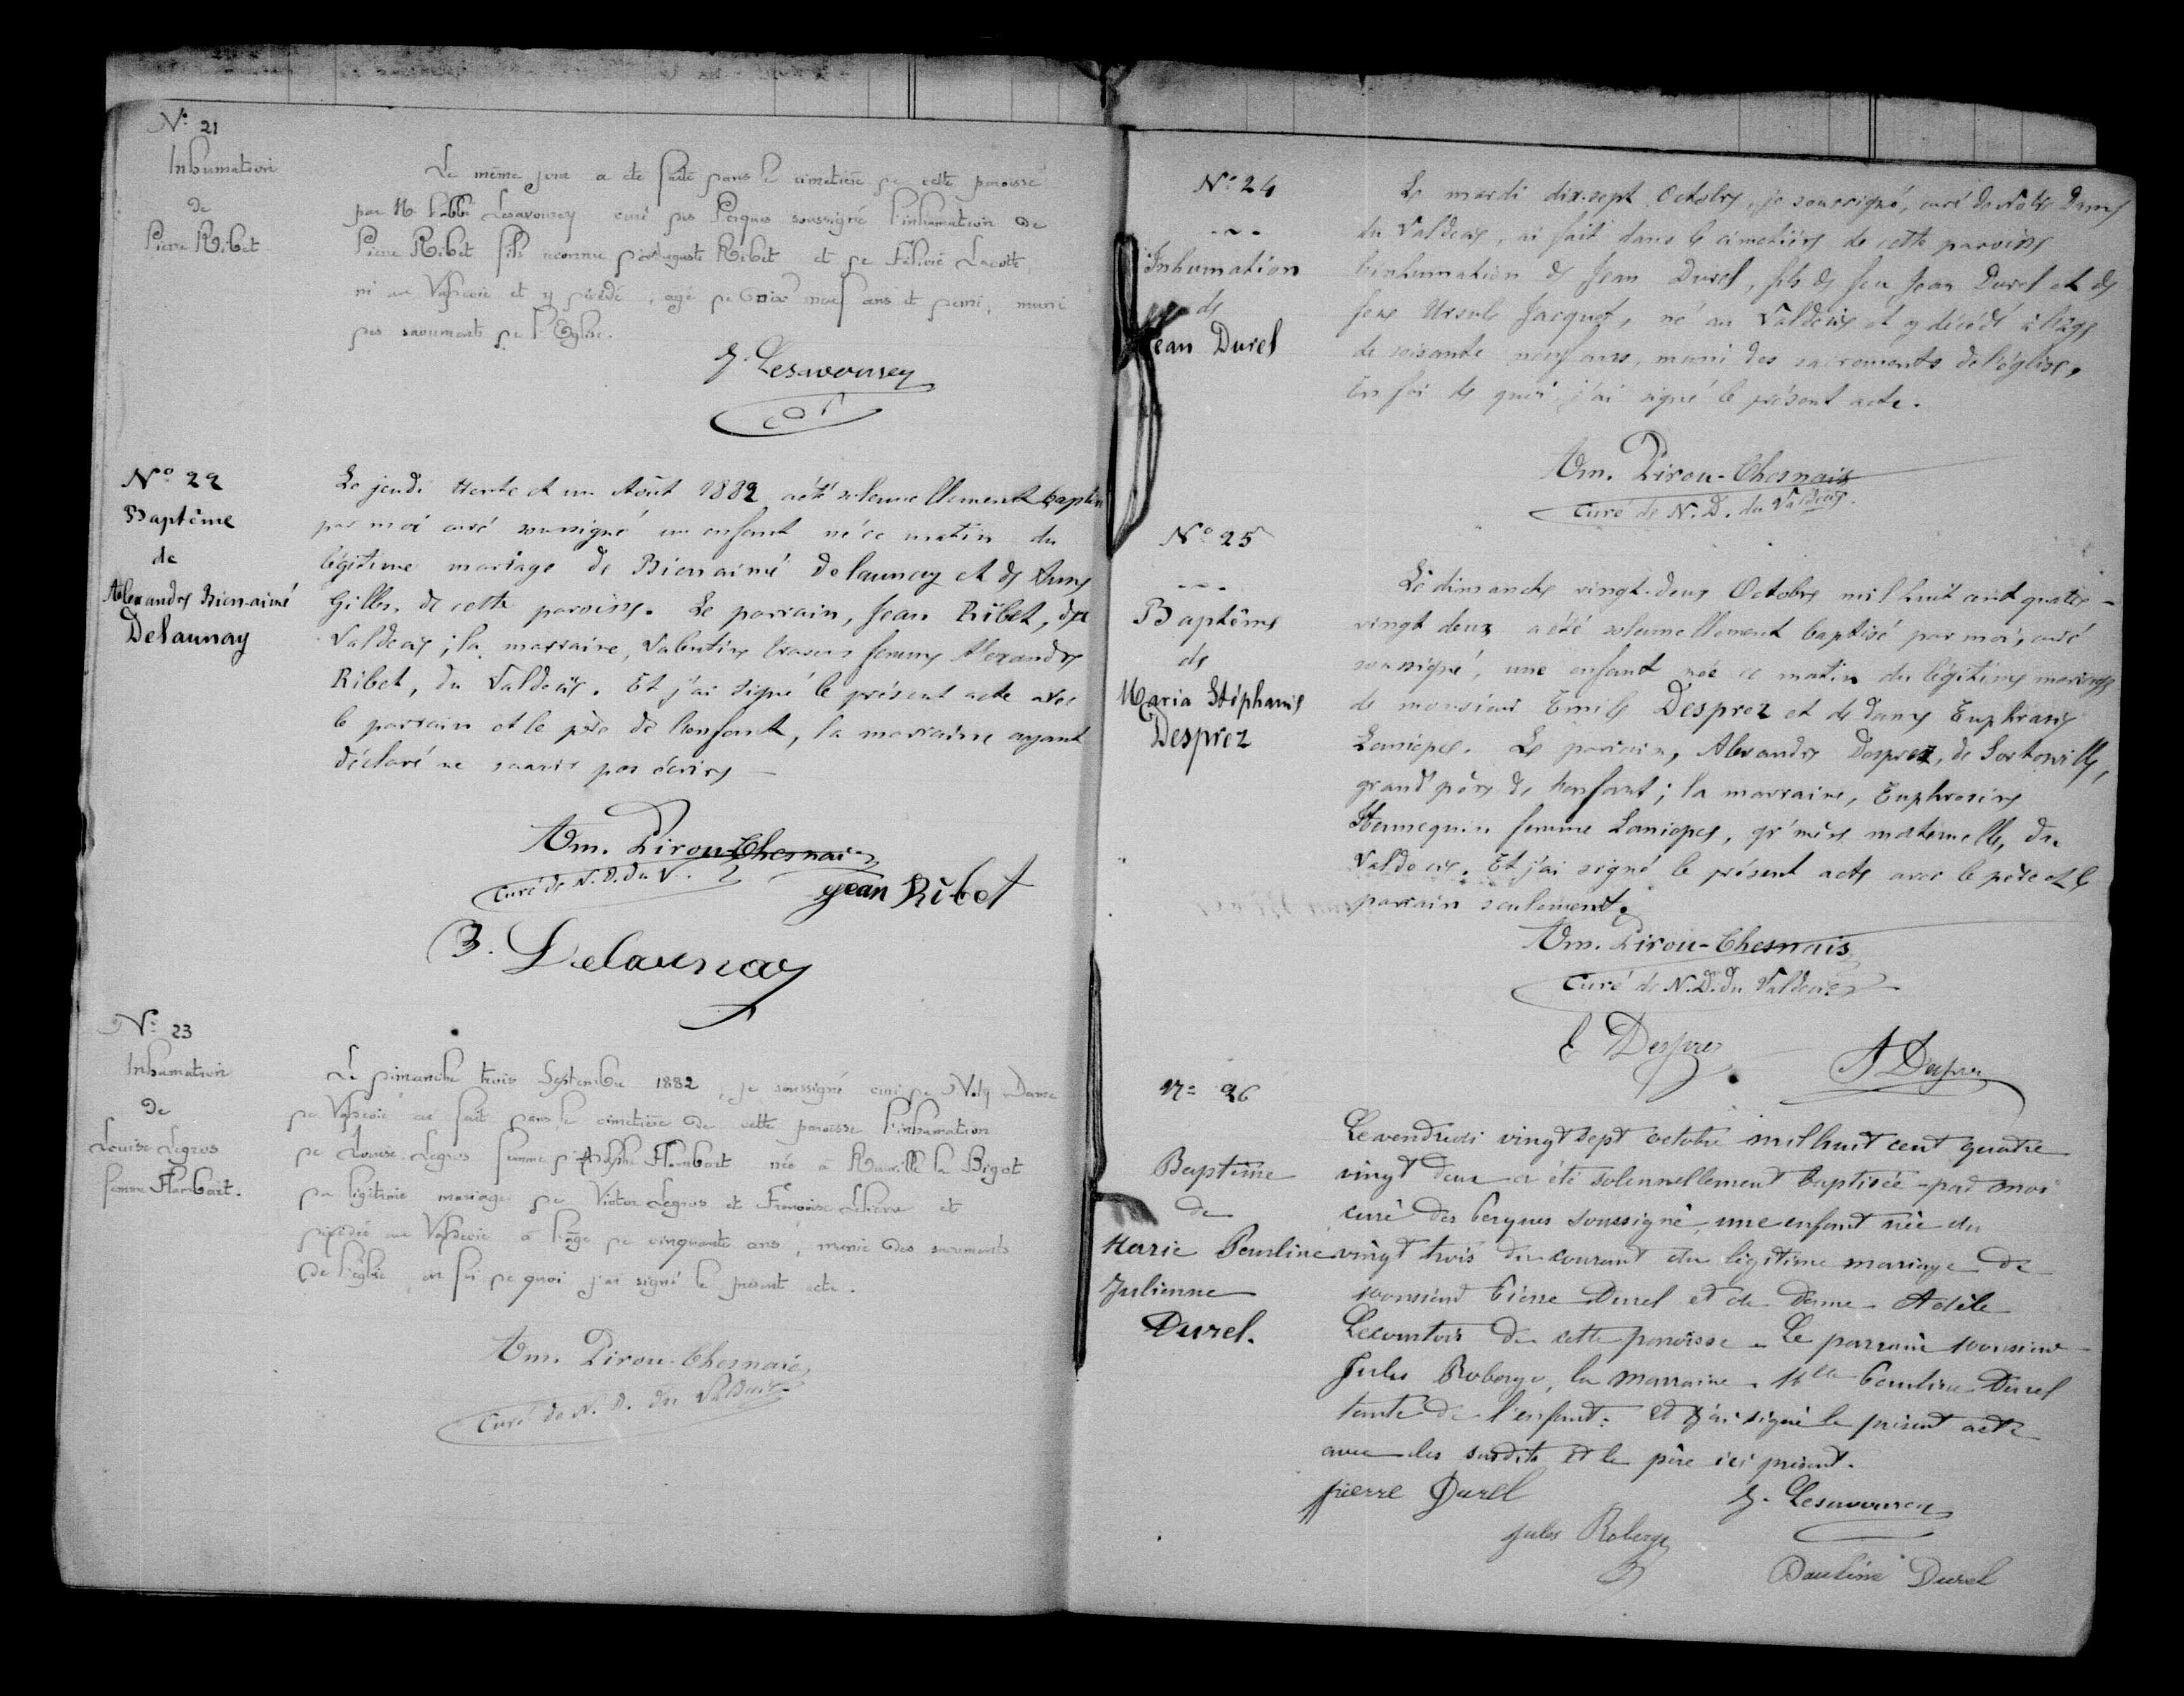 N° 21
Inhumation
de
Pierre Ribet
Le même jour a été faite dans le cimetière de cette paroisse
par M. l'abbé Lesavourey curé des Perques soussigné l'inhumation de
Pierre Ribet fils reconnu d'Auguste Ribet et de Félicité Lacotte,
né au Valdecie et y décédé, agé de neuf ans et demi, muni
des sacrements de l'Eglise.
J. Lesavourey
N° 22
Baptême
de
Alexandre Bien-aimé
Delaunay
Le jeudi trente et un Août 1882 a été solennellement baptisé
par moi curé soussigné un enfant né ce matin du
légitime mariage de Bienaimé Delaunay et de
Gilles, de cette paroisse. Le parrain, Jean Ribet, du
Valdecie; la marraine, Valentine femme Alexandre
Ribet, du Valdecie. Et j'ai signé le présent acte avec
le parrain et le père de l'enfant, la marraine ayant
déclaré ne savoir pas écrire —
Am. Pirou-Chesnais
Curé de N. D. du V.
jean Ribet
B. Delaunay
N° 23
Inhumation
de
Louise Legros
femme Flambart.
Le dimanche trois Septembre 1882, je soussigné curé de Notre Dame
du Valdecie ai fait dans le cimetière de cette paroisse l'inhumation
de Louise Legros femme d'Adolphe Flambart née à Rauville la Bigot
du légitime mariage de Victor Legros et Françoise Lelièvre et
décédée au Valdecie à l'âge de cinquante ans, munie des sacrements
de l'église, en foi de quoi j'ai signé le présent acte.
Am. Pirou-Chesnais
Curé de N. D. du Valdecie
N° 24
Inhumation
de
Jean Durel
Le mardi dix-sept Octobre, je soussigné, curé de Notre Dame
du Valdecie, ai fait dans le cimetière de cette paroisse
l'inhumation de Jean Durel, fils de feu Jean Durel et de
feue Ursule Jacquet, né au Valdecie et y décédé à l'âge
de soixante neuf ans, muni des sacrements de l'église,
En foi de quoi j'ai signé le présent acte.
Am. Pirou-Chesnais
Curé de N. D. du Valdecie.
N° 25
Baptême
de
Maria Stéphanie
Desprez
Le dimanche vingt-deux Octobre mil huit cent quatre-
vingt deux a été solennellement baptisé par moi, curé
soussigné, une enfant née ce matin du légitime mariage
de monsieur Emile Desprez et de dame Euphrasie
Laniepce. Le parrain, Alexandre Desprez, de Sortosville,
grand père de l'enfant; la marraine, Euphrosine
Hennequin femme Laniepce, gr'mère maternelle, du
Valdecie. Et j'ai signé le présent acte avec le père et le
parrain seulement.
Am. Pirou-Chesnais
Curé de N. D. du Valdecie
E Desprez
A Desprez
N° 26
Baptême
de
Marie Pauline
Julienne
Durel.
Le vendredi vingt sept octobre mil huit cent quatre
vingt deux a été solennellement baptisée par moi
curé des Perques soussigné, une enfant née du
vingt trois du courant du légitime mariage de
monsieur Pierre Durel et de dame Adèle
Lecourtois de cette paroisse - Le parrain monsieur
Jules Roberge, la marraine Mlle Pauline Durel
tante de l'enfant: et j'ai signé le présent acte
avec les susdits et le père ici présent.
pierre Durel
J. Lesavourey
jules Roberge
Pauline Durel